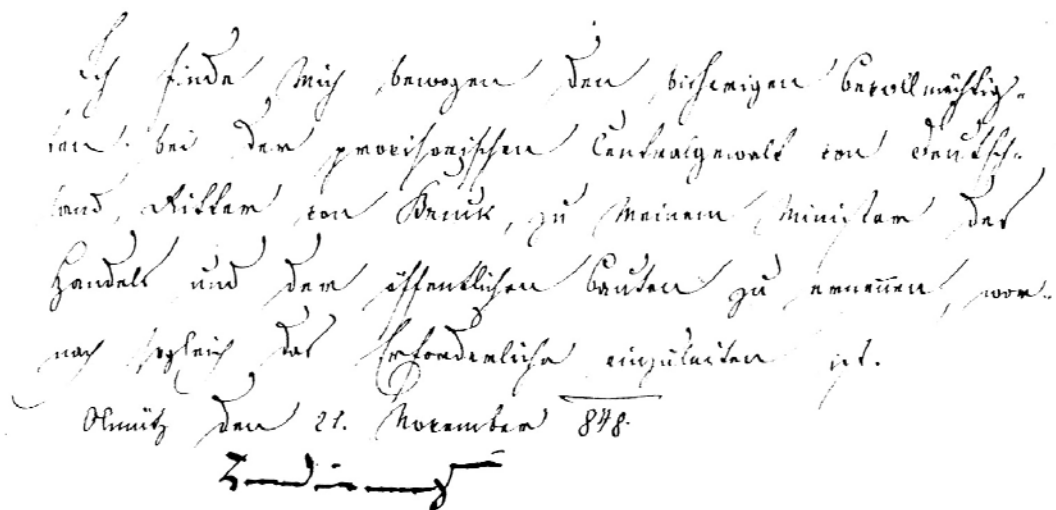 Ich finde Mich bewogen den bisherigen Bevollmächtig-
ten bei der provisorischen Centralgewalt von Deutsch-
land, Ritter von Bruck, zu Meinem Minister des
Handels und der öffentlichen Bauten zu ernen̄en, wor-
nach sogleich das Erforderliche einzuleiten ist.
Olmütz den 21. November 848.
Ferdinand